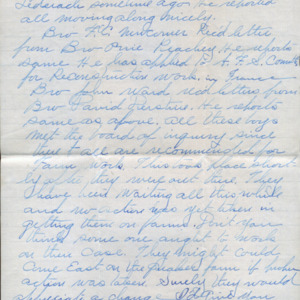 sometime ago. He reported
all moving along nicely.
Bro F.C. Recd letter
from Bro Orie He reports
same. He has applied to A.F.S. Com
for Reconstruction work. in France
Bro John Ward recd letters from
Bro David He reports
same as above. all these boys
met the board of inquiry since
they all are recommended for
Farm Work. This took place short-
ly after they were out there. They
have been waiting all this while
and no action was yet taken in
getting them on farms. Don't you
think some one ought to work
on their case. They might could
Come East on the farm if further
action was taken. Surely they would
a change